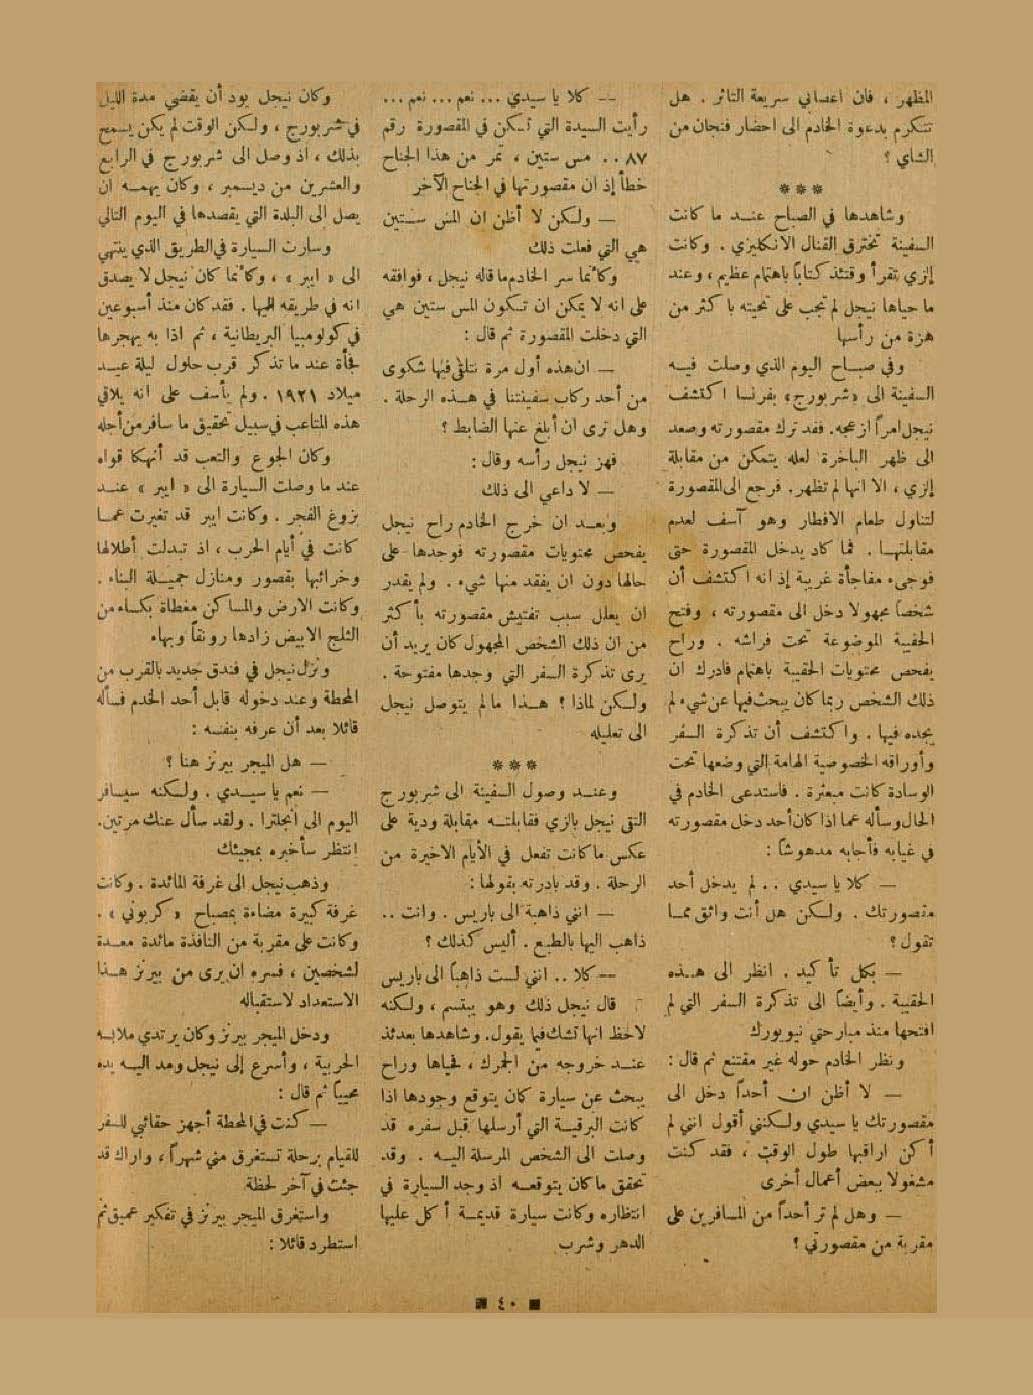 المظهر ، فان اعصابي سريعة التاثر . هل
تتكرم بدعوة الخادم الى احضار فنجان من
الشاي ؟
***
وشاهدها في الصباح عند ما كانت
السفينة تخترق القنال الانكليزي . وكانت
إلزي تقرأ وقتئذ كتاباً باهتمام عظيم ، وعند
ما حياها نيجل لم تجب على تحيته باكثر من
هزة من رأسها
وفي صباح اليوم الذي وصلت فيه
السفينة الى «شربورج» بفرنسا اكتشف
نيجل امراً ازعجه. فقد ترك مقصورته وصعد
الى ظهر الباخرة لعله يتمكن من مقابلة
إلزي ، الا انها لم تظهر. فرجع الى المقصورة
لتناول طعام الافطار وهو آسف لعدم
مقابلتها . فما كاد يدخل المقصورة حتى
فوجىء مفاجأة غريبة إذ انه اكتشف أن
شخصاً مجهولا دخل الى مقصورته ، وفتح
الحقيبة الموضوعة تحت فراشه . وراح
يفحص محتويات الحقيبة باهتمام فادرك ان
ذلك الشخص ربما كان يبحث فيها عن شيء لم
يجده فيها . واكتشف أن تذكرة السفر
وأوراقه الخصوصية الهامة التي وضعها تحت
الوسادة كانت مبعثرة . فاستدعى الخادم في
الحال وسأله عما اذا كان أحد دخل مقصورته
في غيابه فأجابه مدهوشاً :
— كلا يا سيدي .. لم يدخل أحد
مقصورتك . ولكن هل أنت واثق مما
تقول ؟
— بكل تأكيد . انظر الى هذه
الحقيبة . وأيضاً الى تذكرة السفر التي لم
افتحها منذ مبارحتي نيويورك
ونظر الخادم حوله غير مقتنع ثم قال :
— لا أظن ان أحداً دخل الى
مقصورتك يا سيدي ولكنني أقول انني لم
أكن اراقبها طول الوقت ، فقد كنت
مشغولا ببعض أعمال أخرى
— وهل لم تر أحداً من المسافرين على
مقربة من مقصورتي ؟
— كلا يا سيدي ... نعم ... نعم ...
رأيت السيدة التي تسكن في المقصورة رقم
٨٧ .. مس ستين ، تمر من هذا الجناح
خطأ إذ ان مقصورتها في الجناح الآخر
— ولكن لا أظن ان المس ستين
هي التي فعلت ذلك
وكأنما سر الخادم ما قاله نيجل ، فوافقه
على انه لا يمكن ان تكون المس ستين هي
التي دخلت المقصورة ثم قال :
— ان هذه أول مرة نتلقى فيها شكوى
من أحد ركاب سفينتنا في هذه الرحلة .
وهل ترى ان أبلغ عنها الضابط ؟
فهز نيجل رأسه وقال :
— لا داعي الى ذلك
وبعد ان خرج الخادم راح نيجل
يفحص محتويات مقصورته فوجدها على
حالها دون ان يفقد منها شيء . ولم يقدر
ان يعلل سبب تفتيش مقصورته بأكثر
من ان ذلك الشخص المجهول كان يريد أن
يرى تذكرة السفر التي وجدها مفتوحة .
ولكن لماذا ؟ هذا مالم يتوصل نيجل
الى تعليله
***
وعند وصول السفينة الى شربورج
التقى نيجل بالزي فقابلته مقابلة ودية على
عكس ما كانت تفعل في الأيام الاخيرة من
الرحلة . وقد بادرته بقولها :
— انني ذاهبة الى باريس . وانت ..
ذاهب اليها بالطبع . أليس كذلك ؟
— كلا .. انني لست ذاهباً الى باريس
قال نيجل ذلك وهو يبتسم ، ولكنه
لاحظ انها تشك فيما يقول. وشاهدها بعدئذ
عند خروجه من الجمرك ، فحياها وراح
يبحث عن سيارة كان يتوقع وجودها اذا
كانت البرقية التي أرسلها قبل سفره قد
وصلت الى الشخص المرسلة اليه . وقد
تحقق ما كان يتوقعه اذ وجد السيارة في
انتظاره وكانت سيارة قديمة أكل عليها
الدهر وشرب
وكان نيجل يود أن يقضي مدة الليل
في شربورج ، ولكن الوقت لم يكن يسمح
بذلك ، اذ وصل الى شربورج في الرابع
والعشرين من ديسمبر ، وكان يهمه ان
يصل الى البلدة التي يقصدها في اليوم التالي
وسارت السيارة في الطريق الذي ينتهي
الى « ايبر » ، وكأنما كان نيجل لا يصدق
انه في طريقه اليها . فقد كان منذ أسبوعين
في كولومبيا البريطانية ، ثم اذا به يهجرها
فجأة عند ما تذكر قرب حلول ليلة عيد
ميلاد ١٩٢١ . ولم يأسف على انه يلاقي
هذه المتاعب في سبيل تحقيق ما سافر من أجله
وكان الجوع والتعب قد أنهكا قواه
عند ما وصلت السيارة الى « ايبر » عند
بزوغ الفجر . وكانت ايبر قد تغيرت عما
كانت في أيام الحرب ، اذ تبدلت أطلالها
وخرائبها بقصور ومنازل جميلة البناء .
وكانت الارض والمساكن مغطاة بكساء من
الثلج الابيض زادها رونقاً وبهاء
ونزل نيجل في فندق جديد بالقرب من
المحطة وعند دخوله قابل أحد الخدم فسأله
قائلا بعد أن عرفه بنفسه :
— هل الميجر بيرنز هنا ؟
— نعم يا سيدي . ولكنه سيسافر
اليوم الى انجلترا . ولقد سأل عنك مرتين.
انتظر سأخبره بمجيئك
وذهب نيجل الى غرفة المائدة . وكانت
غرفة كبيرة مضاءة بمصباح «كربوني» .
وكانت على مقربة من النافذة مائدة معدة
لشخصين ، فسره ان يرى من بيرنز هذا
الاستعداد لاستقباله
ودخل الميجر بيرنز وكان يرتدي ملابسه
الحربية ، وأسرع إلى نيجل ومد اليه يده
محيياً ثم قال :
— كنت في المحطة أجهز حقائبي للسفر
للقيام برحلة تستغرق مني شهراً، واراك قد
جئت في آخر لحظة
واستغرق الميجر بيرنز في تفكير عميق ثم
استطرد قائلا :
■ ٤٠ ■